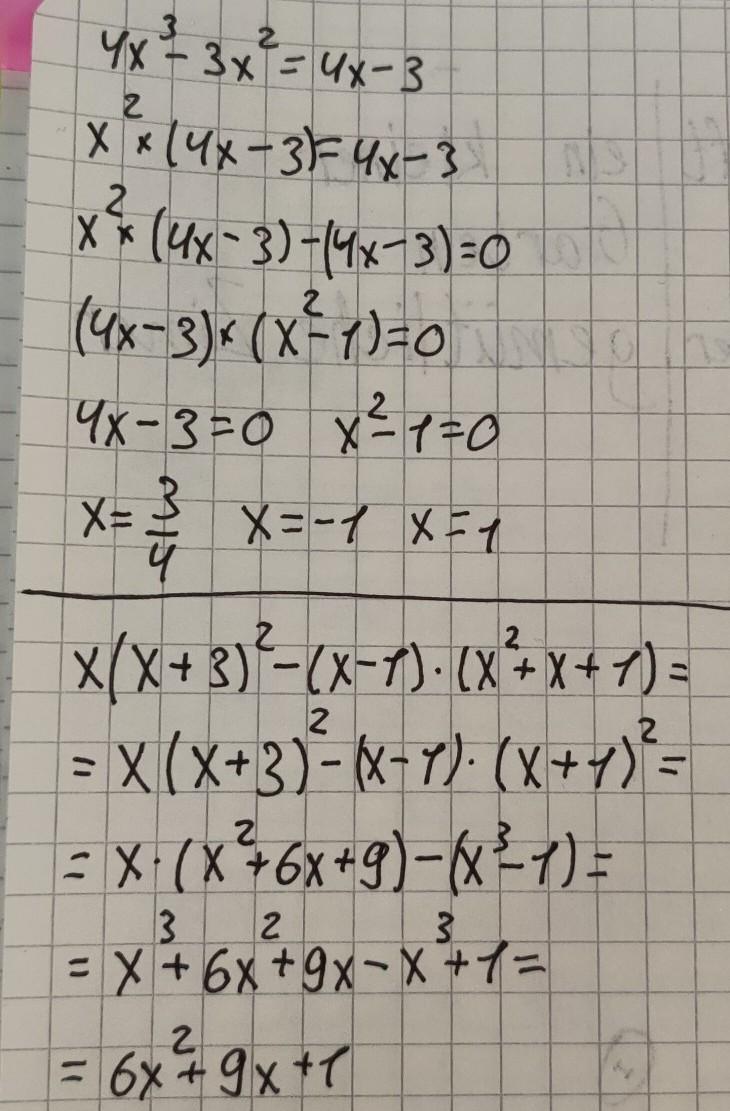 4x³ - 3x² = 4x - 3
x² × (4x - 3) = 4x - 3
x² × (4x - 3) - (4x - 3) = 0
(4x - 3) × (x² - 1) = 0
4x - 3 = 0 x² - 1 = 0
x = 3/4 x = -1 x = 1
x(x + 3)² - (x - 1) · (x² + x + 1) =
= x(x + 3)² - (x - 1) · (x + 1)² =
= x · (x² + 6x + 9) - (x³ - 1) =
= x³ + 6x² + 9x - x³ + 1 =
= 6x² + 9x + 1